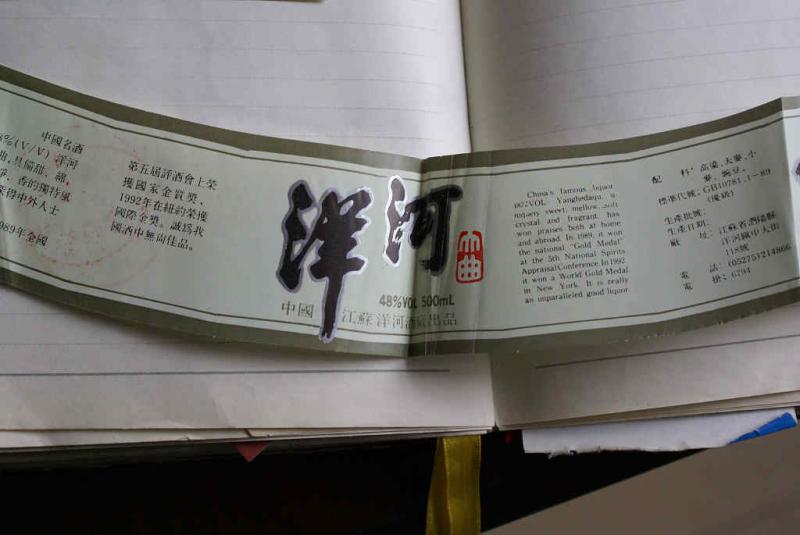 中國名酒
8%(V/V) 洋河
曲,具備甜、綿、
淨、香的獨特風
深得中外人士
989年全國
第五屆評酒會上榮
獲國家金質獎,
1992年在紐約榮獲
國際金獎。誠爲我
國酒中無尚佳品。
洋河
大曲
48%VOL 500mL
中國 江蘇 洋河酒廠出品
China's famous liquor
Yanghedaqu, u
niquely sweet, mellow, soft
crystal and fragrant, has
won praises both at home
and abroad. In 1989, it won
the national "Gold Medal"
at the 5th National Spirits
Appraisal Conference. In 1992
it won a World Gold Medal
in New York. It is really
an unparalleled good liquor
配 料:高粱、大麥、小
麥、豌豆。
標準代號:GB10781.1-89
(優級)
生產批號:
生產日期:
廠 址:江蘇省泗陽縣
洋河鎮中大街
118號
電 話:(05275)214866
電 掛:6794